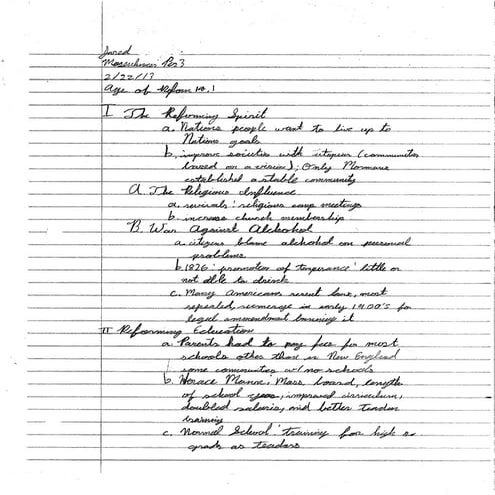 Jared
Per 3
2/22/13
Age of Reform No. 1
I The Reforming Spirit
a. Nations people want to live up to
Nations goals
b. improve societies with utopias (communities
based on a vision); Only Mormons
established a stable community
A. The Religious Influence
a. revivals: religious camp meetings
b. increase church membership
B. War Against Alchohol
a. citizens blame alchohol on personal
problems
b. 1826: promotion of temperance: little or
not able to drink
c. Many Americans resent laws, most
repealed, reemerge in early 1900's for
legal ammendment banning it
II Reforming Education
a. Parents had to pay fees for most
schools other than in New England
some communities w/ no schools
b. Horace Mann: Mass. board, length
of school year, improved curriculum,
doubled salaries, and better teacher
training
c. Normal School: training for high
grads as teachers